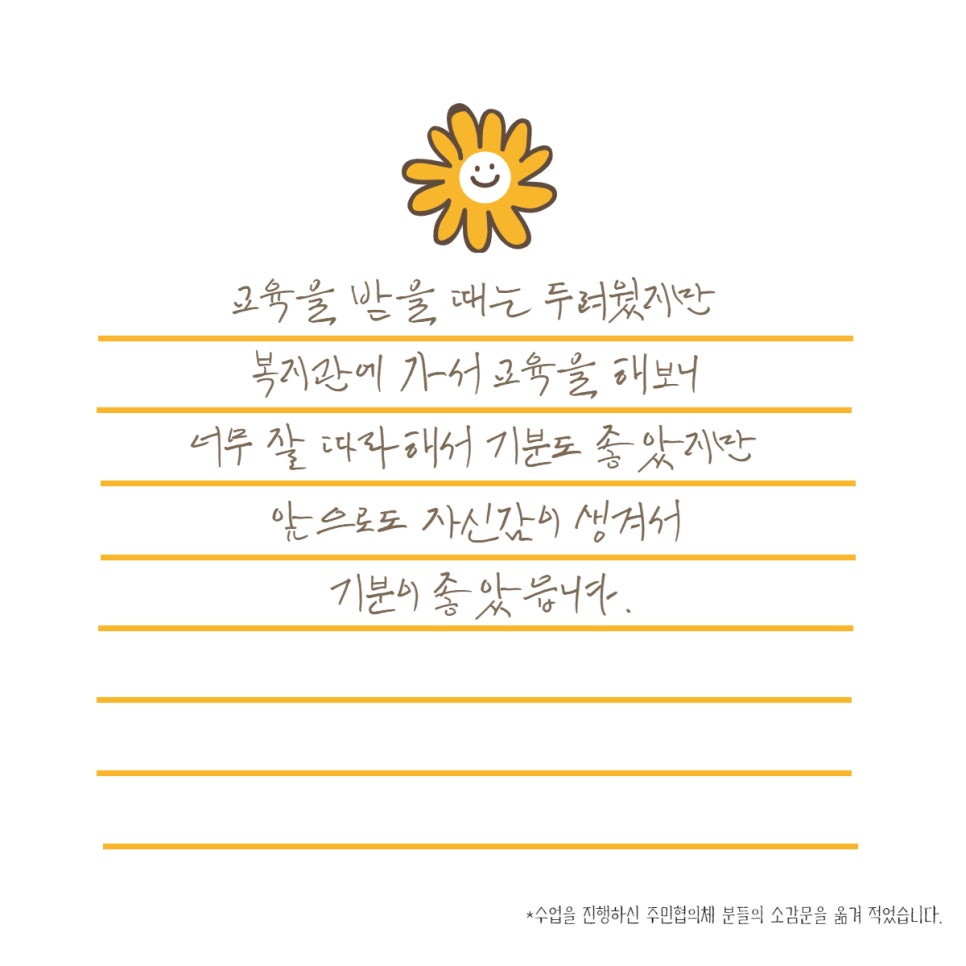 교육을 받을 때는 두려웠지만
복지관에 가서 교육을 해보니
너무 잘 따라해서 기분도 좋았지만
앞으로도 자신감이 생겨서
기분이 좋았읍니다.
*수업을 진행하신 주민협의체 분들의 소감문을 옮겨 적었습니다.